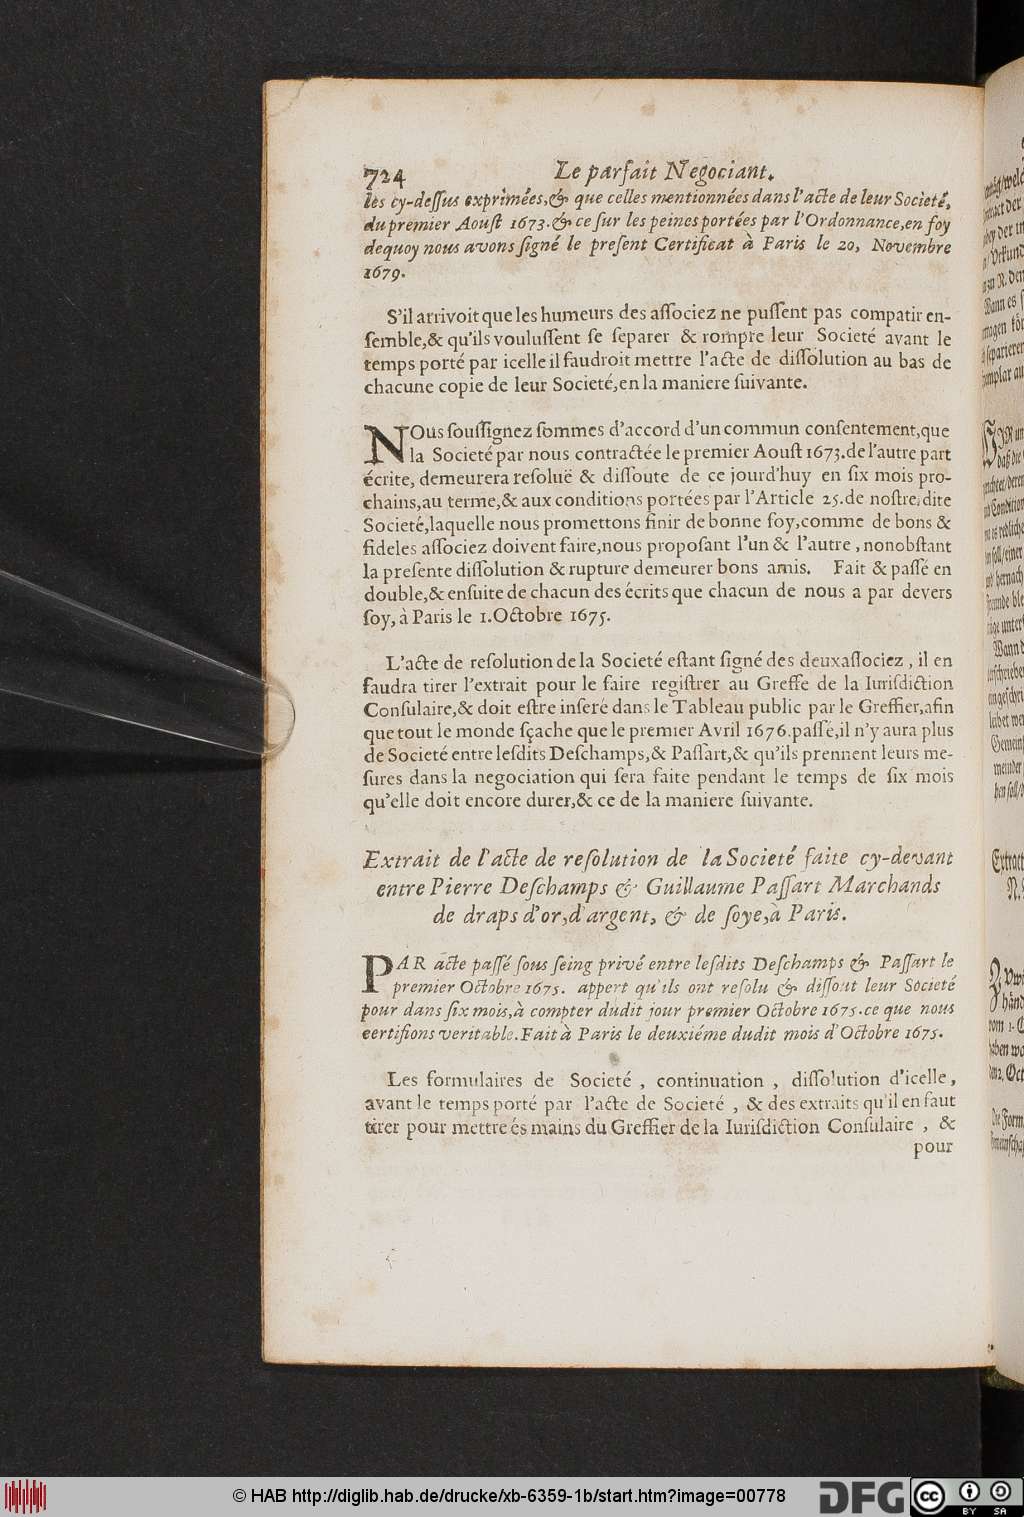 724 Le parfait Negociant.
les cy-deſſus exprimées, & que celles mentionnées dans l'acte de leur Societé,
du premier Aouſt 1673. & ce ſur les peines portées par l'Ordonnance, en foy
dequoy nous avons ſigné le preſent Certificat à Paris le 20, Novembre
1679.
S'il arrivoit que les humeurs des aſſociez ne puſſent pas compatir en-
ſemble, & qu'ils vouluſſent ſe ſeparer & rompre leur Societé avant le
temps porté par icelle il faudroit mettre l'acte de diſſolution au bas de
chacune copie de leur Societé, en la maniere ſuivante.
NOus ſouſſignez ſommes d'accord d'un commun conſentement, que
la Societé par nous contractée le premier Aouſt 1673. de l'autre part
écrite, demeurera reſoluë & diſſoute de ce jourd'huy en ſix mois pro-
chains, au terme, & aux conditions portées par l'Article 25. de noſtre dite
Societé, laquelle nous promettons finir de bonne foy, comme de bons &
fideles aſſociez doivent faire, nous propoſant l'un & l'autre, nonobſtant
la preſente diſſolution & rupture demeurer bons amis. Fait & paſſé en
double, & enſuite de chacun des écrits que chacun de nous a par devers
ſoy, à Paris le 1. Octobre 1675.
L'acte de reſolution de la Societé eſtant ſigné des deux aſſociez, il en
faudra tirer l'extrait pour le faire regiſtrer au Greffe de la Iurisdiction
Conſulaire, & doit eſtre inſeré dans le Tableau public par le Greffier, afin
que tout le monde ſçache que le premier Avril 1676. paſſé, il n'y aura plus
de Societé entre leſdits Deſchamps, & Paſſart, & qu'ils prennent leurs me-
ſures dans la negociation qui ſera faite pendant le temps de ſix mois
qu'elle doit encore durer, & ce de la maniere ſuivante.
Extrait de l'acte de reſolution de la Societé faite cy-devant
entre Pierre Deſchamps & Guillaume Paſſart Marchands
de draps d'or, d'argent, & de ſoye, à Paris.
PAR acte paſſé ſous ſeing privé entre leſdits Deſchamps & Paſſart le
premier Octobre 1675. appert qu'ils ont reſolu & diſſout leur Societé
pour dans ſix mois, à compter dudit jour premier Octobre 1675. ce que nous
certifions veritable. Fait à Paris le deuxiéme dudit mois d'Octobre 1675.
Les formulaires de Societé, continuation, diſſolution d'icelle,
avant le temps porté par l'acte de Societé, & des extraits qu'il en faut
tirer pour mettre és mains du Greffier de la Iurisdiction Conſulaire, &
pour
© HAB http://diglib.hab.de/drucke/xb-6359-1b/start.htm?image=00778
DFG
cc BY SA